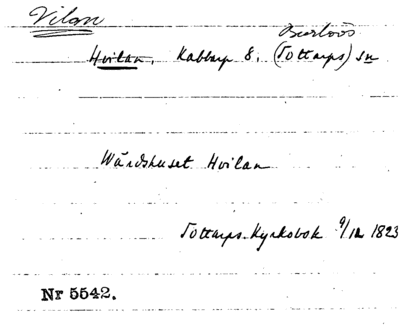 Vilan
Burlövs
Hvilan, Kabbarp 8. (Tottarps) sn
Wärdshuset Hvilan
Tottarps Kyrkobok 9/12 1823
Nr 5542.